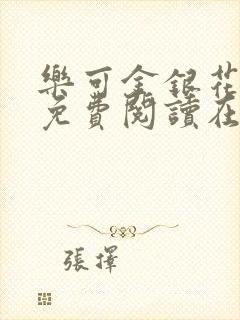 樂可金銀花
免費閱讀在
張擇